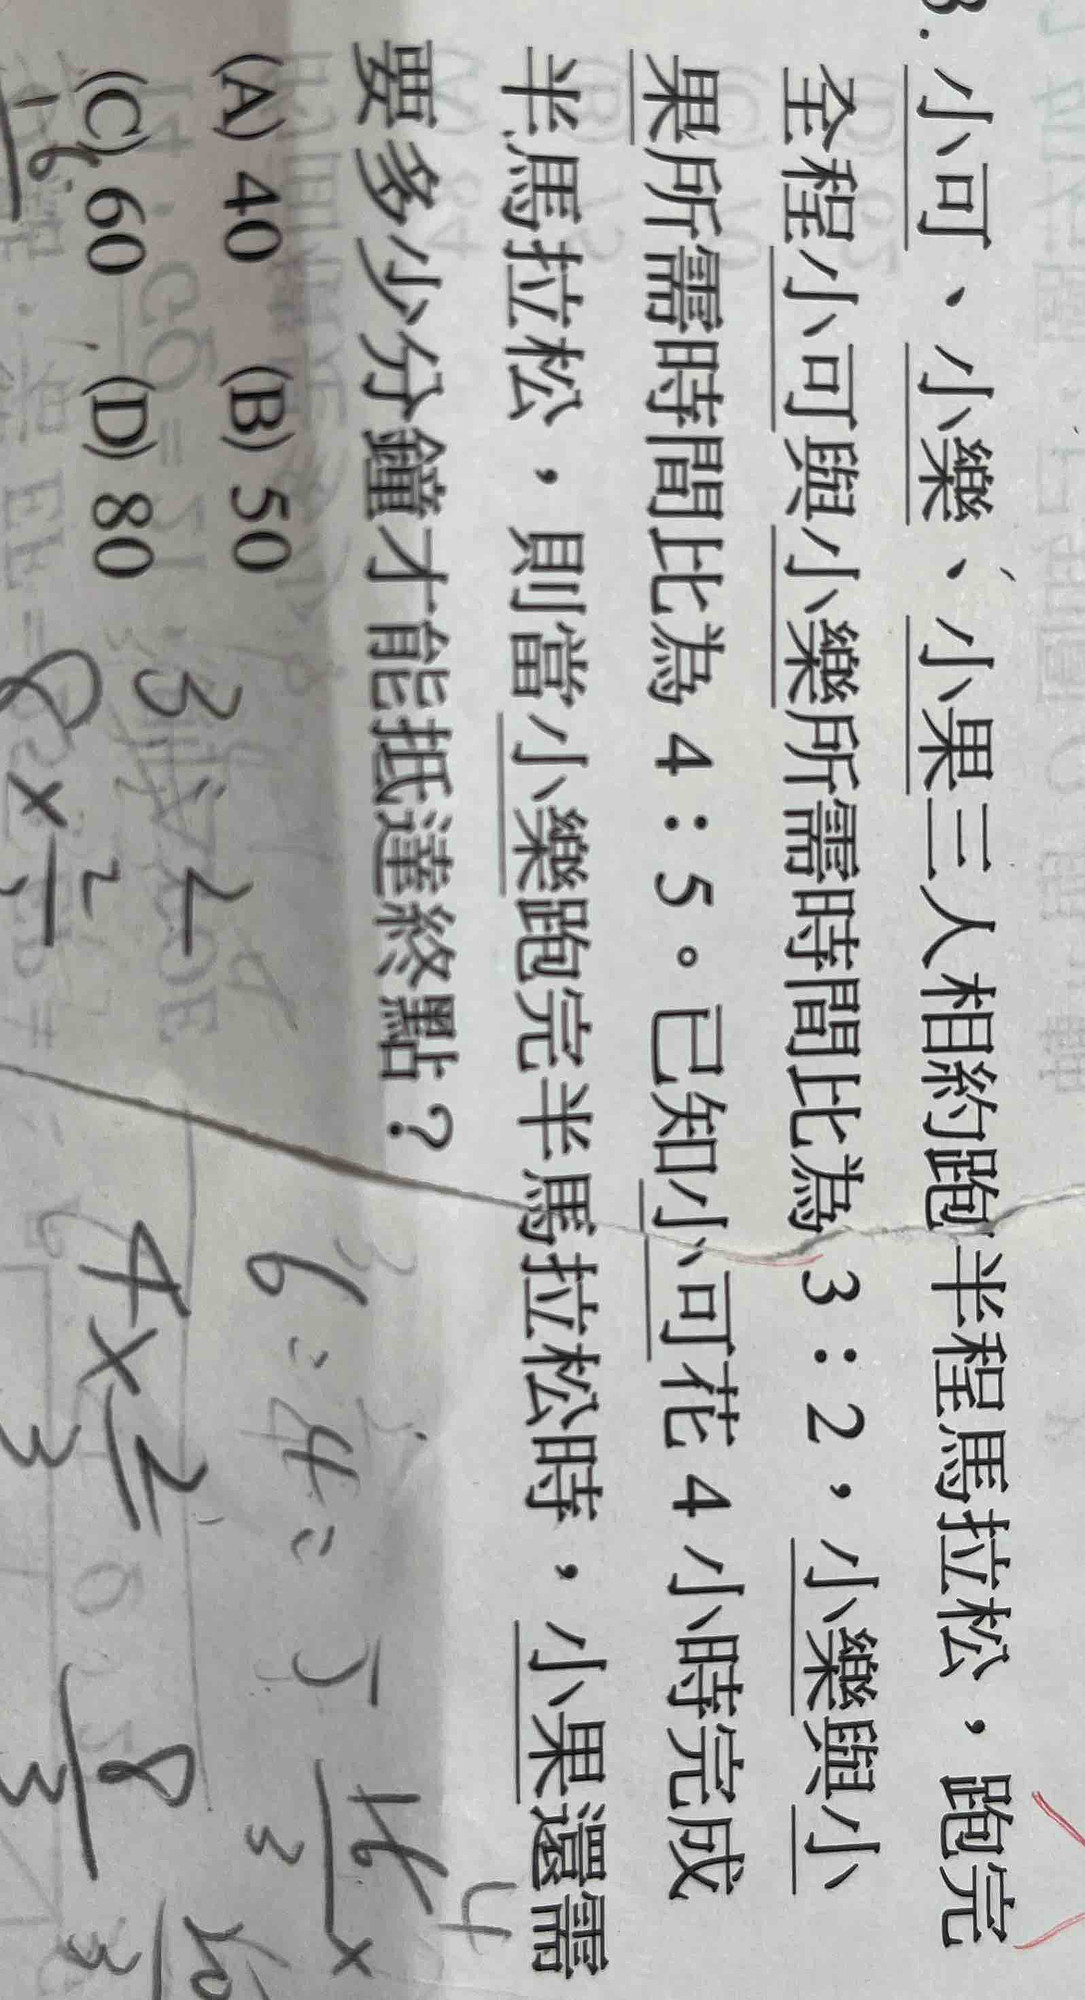 3. 小可、小樂、小果三人相約跑半程馬拉松，跑完
全程小可與小樂所需時間比為 3：2，小樂與小
果所需時間比為 4：5。已知小可花 4 小時完成
半馬拉松，則當小樂跑完半馬拉松時，小果還需
要多少分鐘才能抵達終點？
(A) 40 (B) 50
(C) 60 (D) 80
6:4:5
4×2/3
8/3
10/3